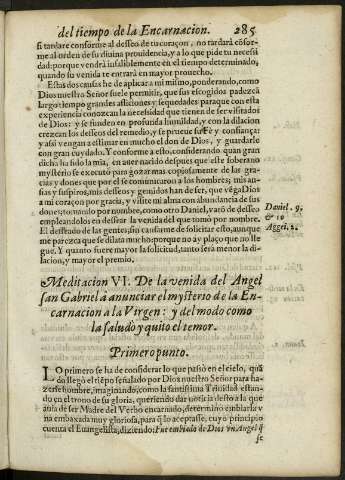 del tiempo de la Encarnacion. 285
si tardare conforme al desseo de tu coraçon, no tardará cõfor-
me al orden de su diuina prouidencia, y a lo que pide tu necessi
dad: porque vendrá infaliblemente en el tiempo determinado,
quando su venida te entrará en mayor prouecho.
Estas dos causas he de aplicar a mi mismo, ponderando, como
Dios nuestro Señor suele permitir, que sus escogidos padezcã
largo tiempo grandes afliciones y sequedades para que con esta
experiencia conozcan la necessidad que tienen de ser visitados
de Dios: y se funden en profunda humildad, y con la dilacion
crezcan los desseos del remedio, y se prueue su Fè y confiança:
y assi vengan a estimar en mucho el don de Dios, y guardarle
con gran cuydado. Y conforme a esto, considerando quan gran
dicha ha sido la mia, en auer nacido despues que este soberano
mysterio se executó para gozar mas copiosamente de las gra-
cias y dones que por el se comunicaron a los hombres; mis an-
sias y suspiros, mis desseos y gemidos han de ser, que vẽga Dios
a mi coraçon por gracia, y visite mi alma con abundancia de sus
dones: tomando por nombre, como otro Daniel, varõ de desseos
empleandolos en dessear la venida del que tomó por nombre.
El desseado de las gentes, sin cansarme de solicitar esto, aunque
me parezca que se dilata mucho: porque no ay plaço que no lle
gue. Y quanto fuere mayor la solicitud, tanto será menor la di-
lacion, y mayor el premio.
Daniel. 9.
& 10
Aggei. 2.
Meditacion VI. De la venida del Angel
san Gabriel a anunciar el mysterio de la En-
carnacion a la Virgen: y del modo como
la saludó y quitó el temor.
Primero punto.
LO primero se ha de considerar lo que passó en el cielo, quã
do llegó el tiẽpo señalado por Dios nuestro Señor para ha-
zerse hombre, imaginando, como la santissima Trinidad estan-
do en el trono de su gloria, queriendo dar noticia desto a la que
auia de ser Madre del Verbo encarnado, determinó embiarle v
na embaxada muy gloriosa, para q̃ lo aceptasse, cuyo principio
cuenta el Euangelista, diziendo: Fue embiado de Dios vn Angel q̃
se